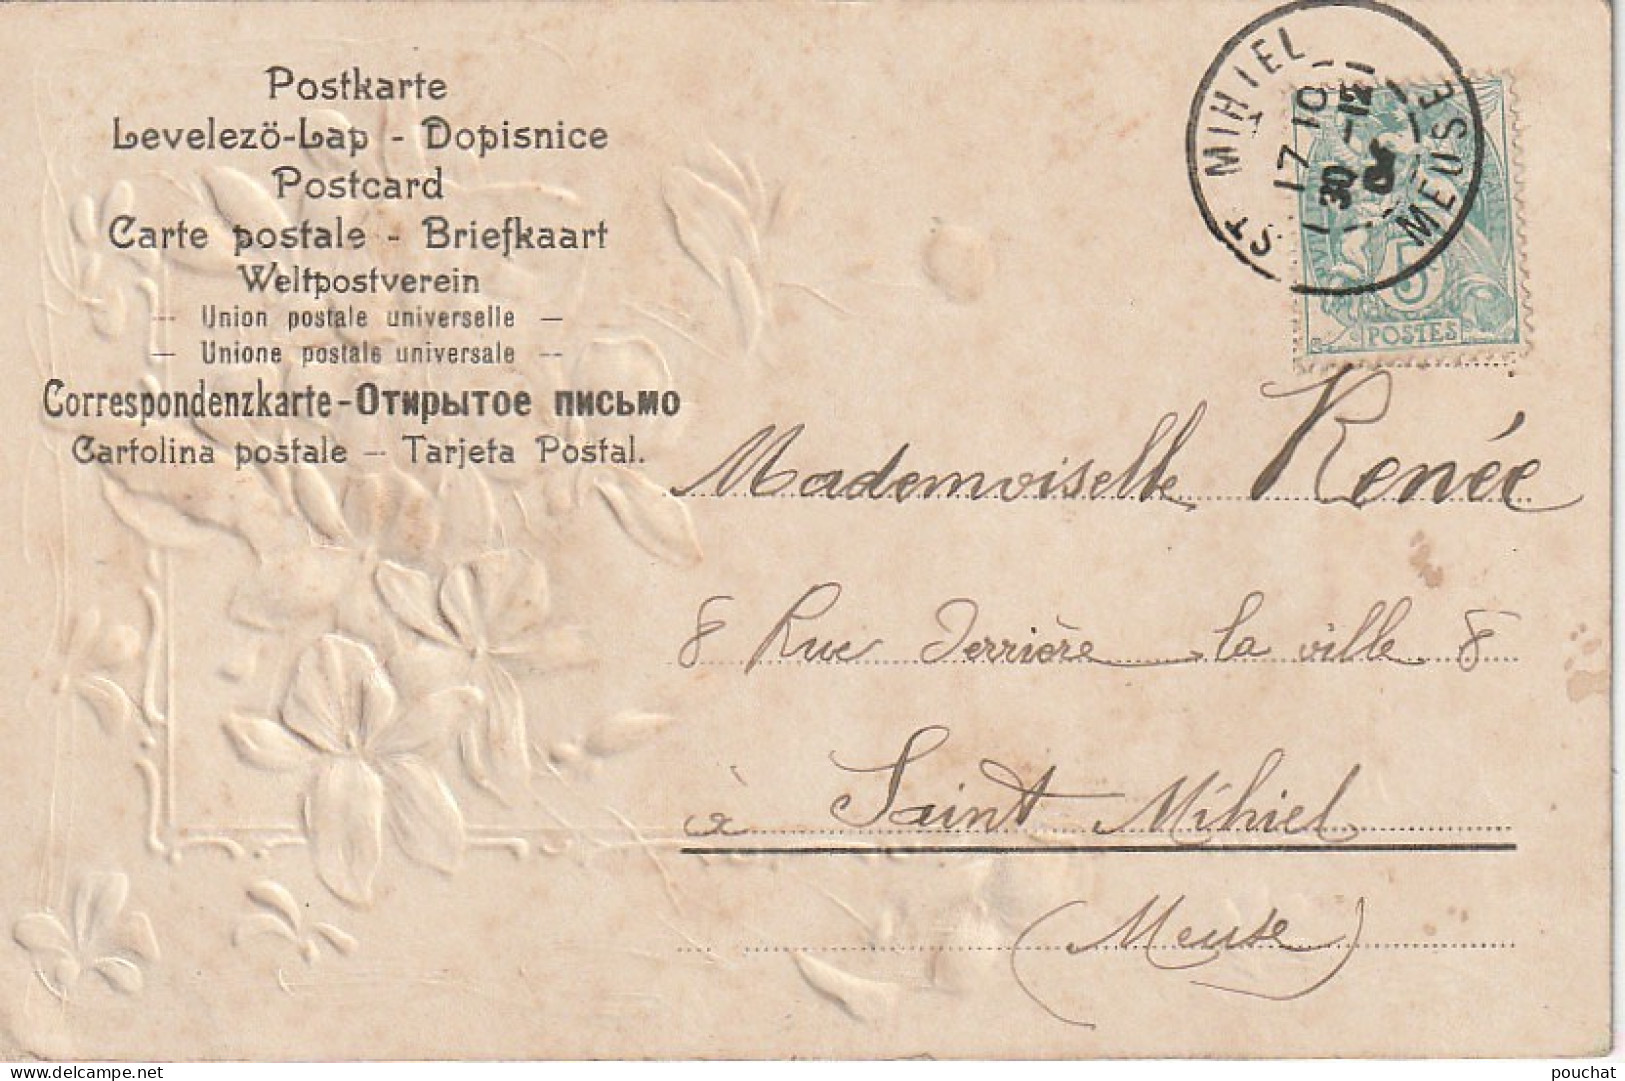 Postkarte
Levelezö-Lap - Dopisnice
Postcard
Carte postale - Briefkaart
Weltpostverein
— Union postale universelle —
— Unione postale universale —
Correspondenzkarte - Открытое письмо
Cartolina postale — Tarjeta Postal.
ST MIHIEL
17 10
30 - 12
MEUSE
5
POSTES
Mademoiselle Renée
8 Rue Derrière la ville 8
à Saint Mihiel
(Meuse)
pouchat